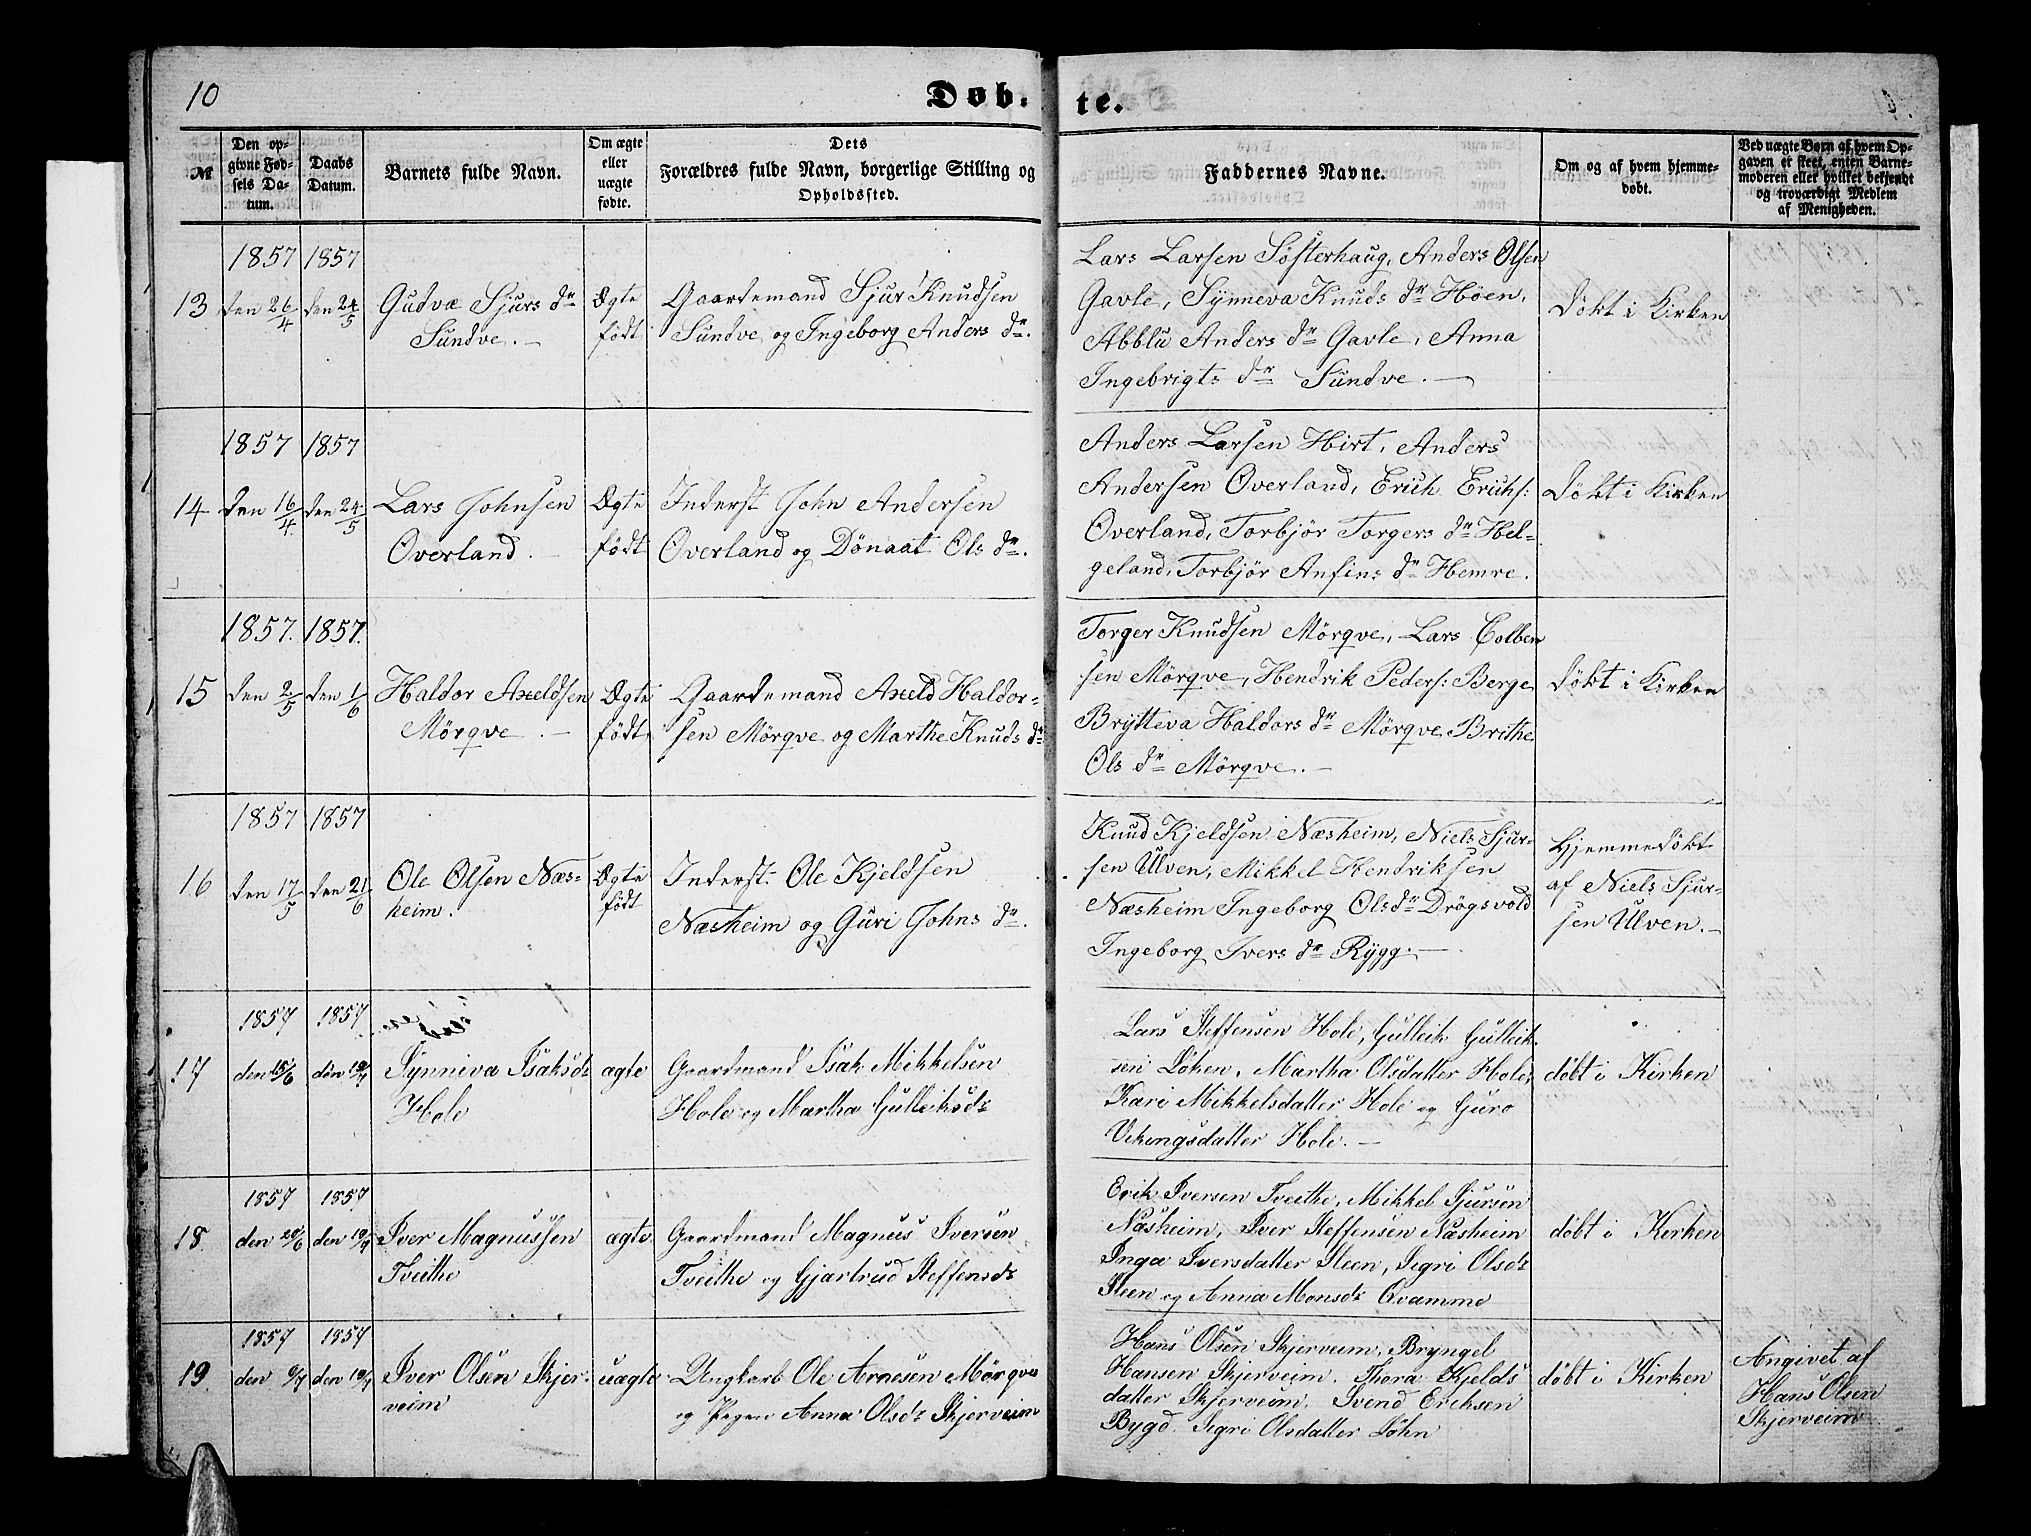 10
Døb.
te.
№
Den op-
givne Fød-
sels Da-
tum.
Daabs
Datum.
Barnets fulde Navn.
Om ægte
eller
uægte
fødte.
Dets
Forældres fulde Navn, borgerlige Stilling og
Opholdssted.
Faddernes Navne.
Om og af hvem hjemme-
døbt.
Ved uægte Børn af hvem Op-
gaven er skeet, enten Barne-
moderen eller hvilket bekjendt
og troværdigt Medlem
af Menigheden.
1857 1857
13 den 26/4 den 24/5
Gudvæ Sjurs dr
Sundve. –
Ægte
født
Gaardemand Sjur Knudsen
Sundve og Ingeborg Anders dr.
Lars Larsen Søfterhaug, Anders Olsen
Gavle, Synneva Knuds dr Høen,
Abblu Anders dr Gavle, Anna
Ingebrigts dr Sundve. –
Døbt i Kirken
1857 1857
14 den 16/4 den 24/5
Lars Johnsen
Overland. –
Ægte
født
Inderst John Andersen
Overland og Dönaat Ols dr.
Anders Larsen Hirt, Anders
Andersen Overland, Erich Erichs:
Overland, Torbjör Torgers dr Hel-
geland, Torbjör Anfins dr Hemre.
Døbt i Kirken
1857. 1857.
15 den 2/5 den 1/6
Haldor Axeldsen
Mörqve. –
Ægte
født
Gaardemand Axeld Haldor-
sen Mörqve og Marthe Knuds dr
Torger Knudsen Mörqve, Lars Colben
sen Mörqve, Hendrik Peders: Berge
Brytteva Haldors dr Mörqve, Brithe
Ols dr Mörqve. –
Døbt i Kirken
1857 1857
16 den 17/5 den 21/6
Ole Olsen Næs-
heim.
Ægte
født
Inderst Ole Kjeldsen
Næsheim og Guri Johns dr.
Knud Kjeldsen Næsheim, Niels Sjur-
sen Ulven, Mikkel Hendriksen
Næsheim Ingeborg Ols dr Drögsvold
Ingeborg Ivers dr Rygg. –
Hjemmedøbt
af Niels Sjur-
sen Ulven. –
1857 1857
17 den 15/6 den 19/7
Synniva Isaksdr
Hole
ægte
Gaardmand Isak Mikkelsen
Hole og Martha Gulleiksdr
Lars Steffensen Hole, Gulleik Gulleik-
sen Løken, Martha Olsdatter Hole,
Kari Mikkelsdatter Hole og Guro
Vikingsdatter Hole. –
døbt i Kirken
1857 1857
18 den 20/6 den 19/7
Iver Magnussen
Tveithe
ægte
Gaardmand Magnus Iversen
Tveithe og Gjærtrud Steffensdr
Erik Iversen Tveithe, Mikkel Sjursen
Næsheim, Iver Steffensen Næsheim
Inga Iversdatter Steen, Sigri Olsdr
Steen og Anna Monsdr Qvamme
døbt i Kirken
1857 1857
19. den 9/7 den 19/7
Iver Olsen Skjer-
veim
uægte
Ungkarl Ole Arnesen Mørqve
og Pigen Anna Olsdr Skjerveim
Hans Olsen Skjerveim, Bryngel
Hansen Skjerveim, Thora Kjelds
datter Skjerveim, Svend Ericksen
Bygd, Sigri Olsdatter Løhn
døbt i Kirken
Angivet af
Hans Olsen
Skjerveim